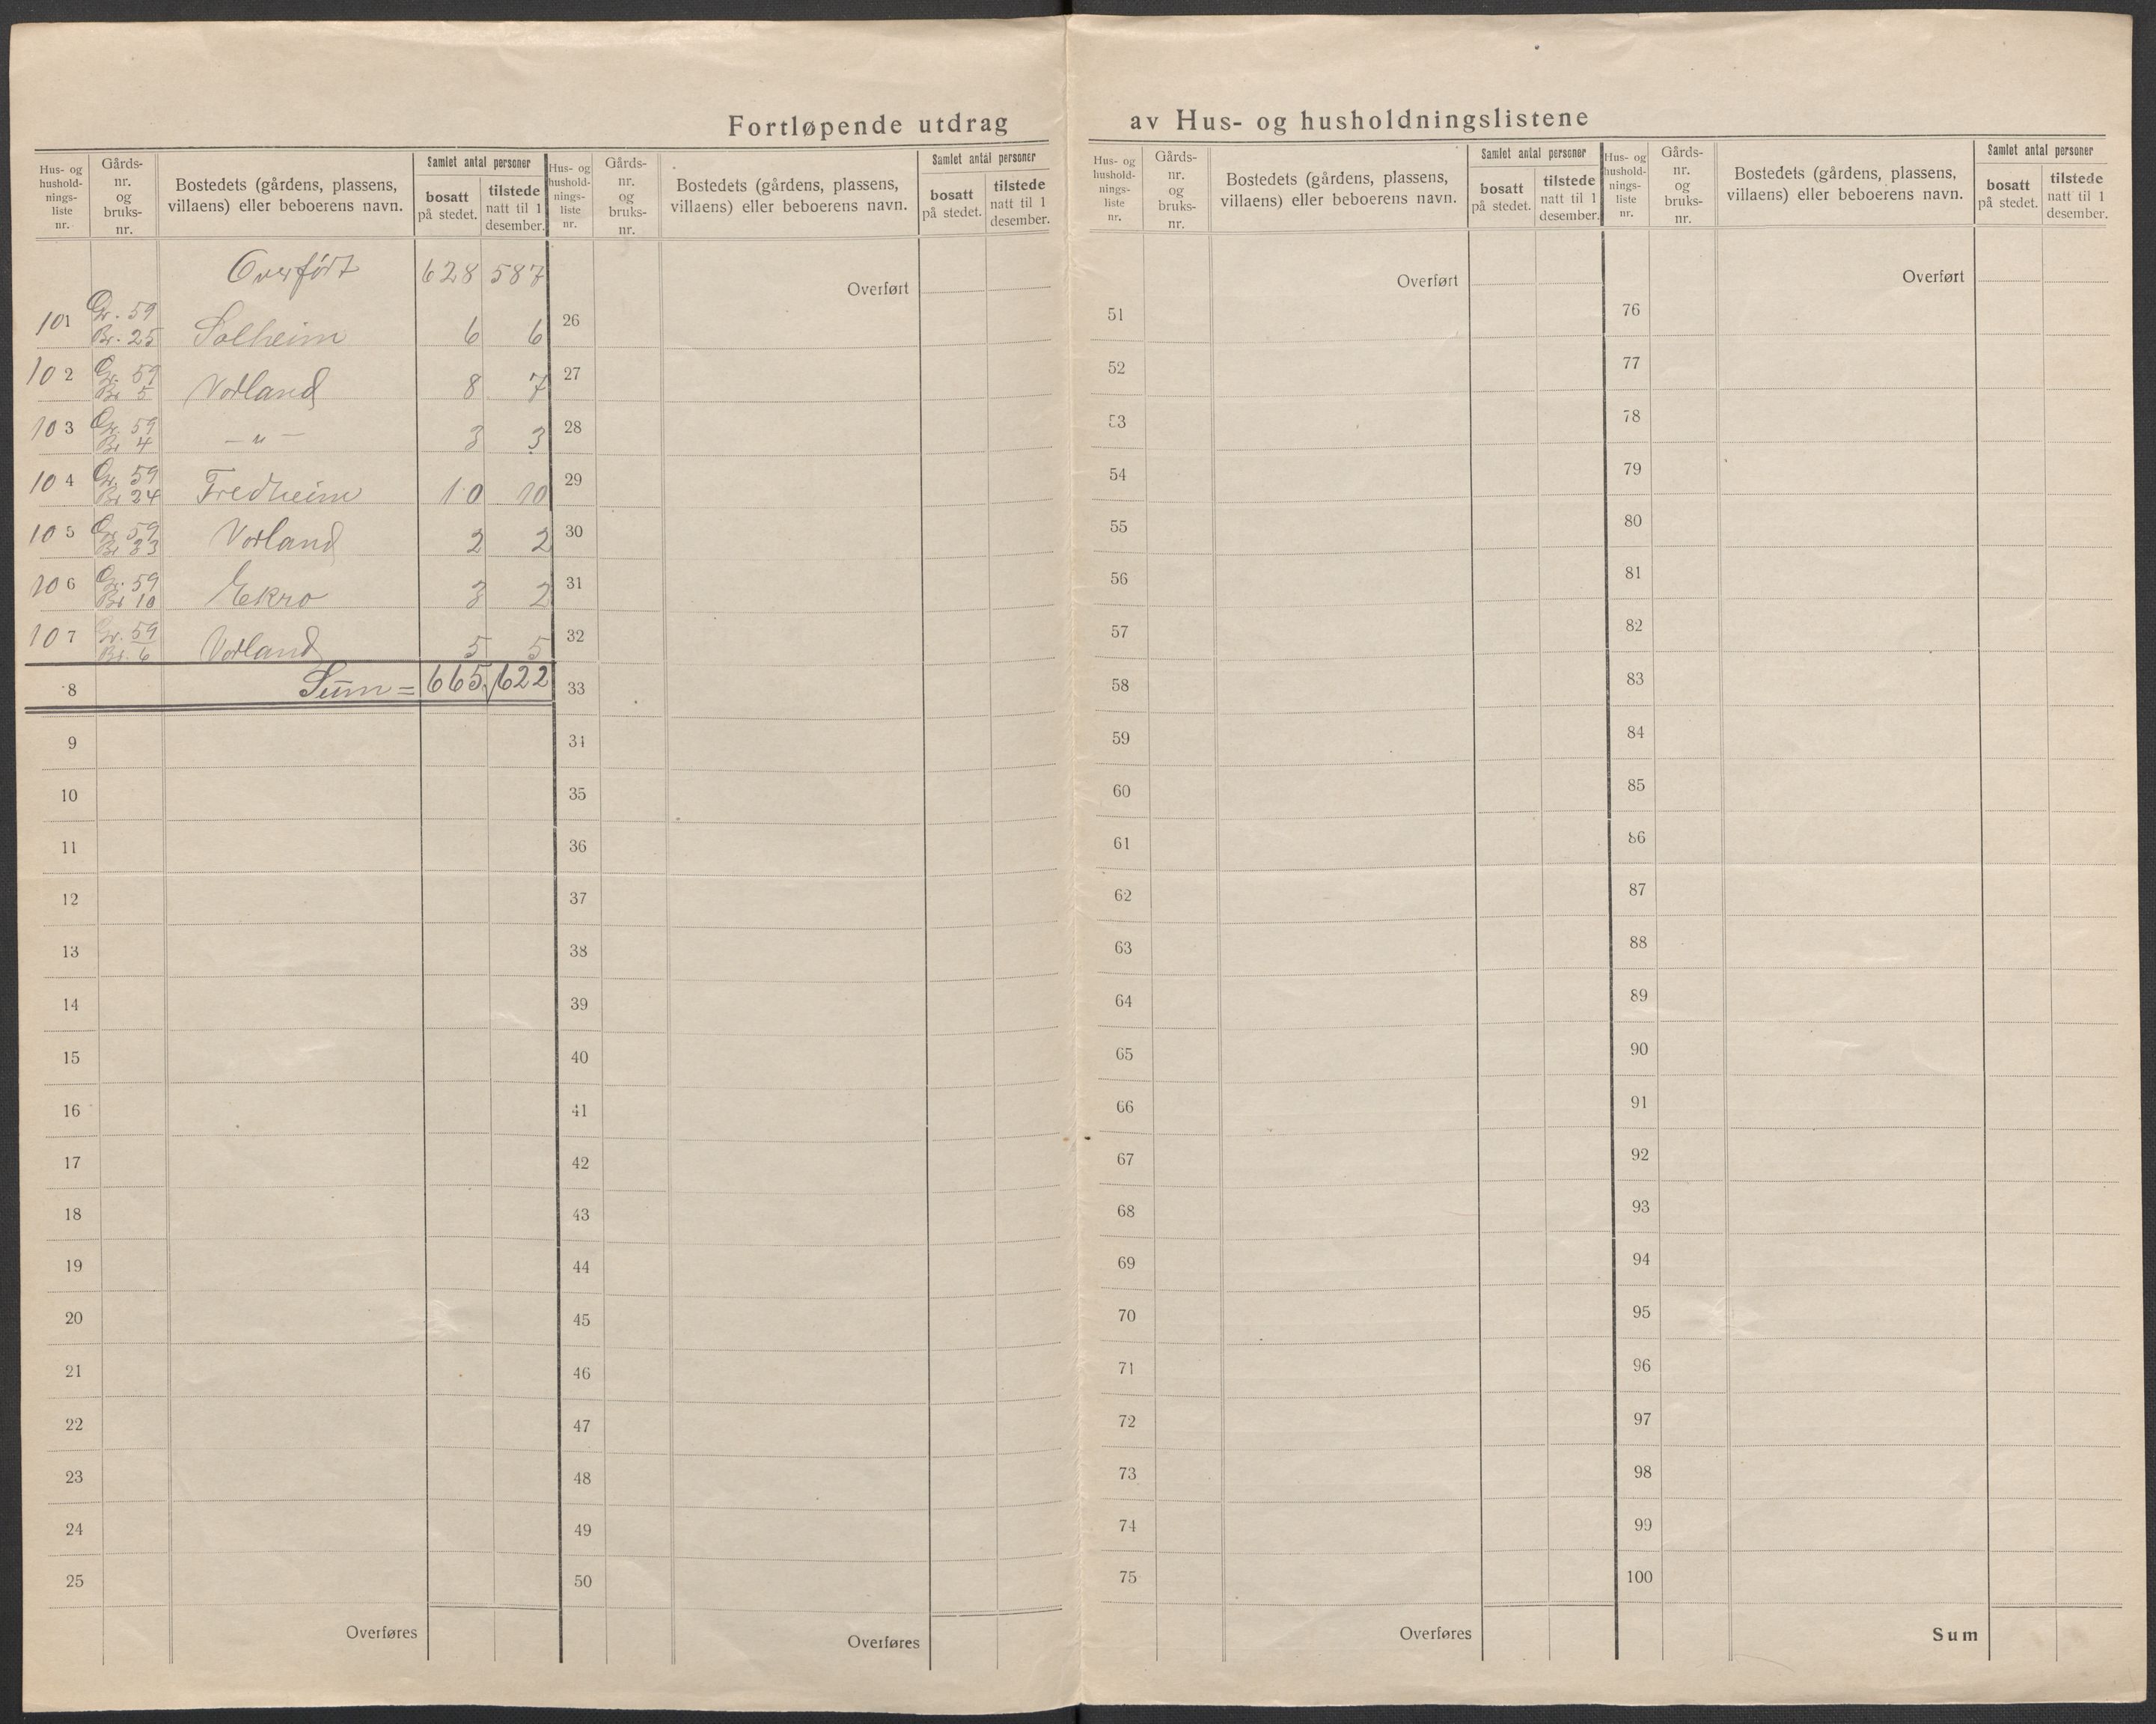 Fortløpende utdrag av Hus- og husholdningslistene
Hus- og hushold-nings-liste nr.
Gårds-nr. og bruks-nr.
Bostedets (gårdens, plassens, villaens) eller beboerens navn.
Samlet antal personer
bosatt på stedet.
tilstede natt til 1 desember.
Overført 628 587
101 Gr. 59 Br. 25 Solheim 6 6
102 Gr. 59 Br 5 Vorland 8 7
103 Gr. 59 Br 4 — " — 3 3
104 Gr. 59 Br 24 Fredheim 10 10
105 Gr 59 Br 33 Vorland 2 2
106 Gr. 59 Br 10 Ekro 3 2
107 Gr. 59 Br. 6 Vorland 5 5
8 Sum = 665 622
9
10
11
12
13
14
15
16
17
18
19
20
21
22
23
24
25
Overføres
Hus- og hushold-nings-liste nr.
Gårds-nr. og bruks-nr.
Bostedets (gårdens, plassens, villaens) eller beboerens navn.
Samlet antal personer
bosatt på stedet.
tilstede natt til 1 desember.
Overført
26
27
28
29
30
31
32
33
34
35
36
37
38
39
40
41
42
43
44
45
46
47
48
49
50
Overføres
Hus- og hushold-nings-liste nr.
Gårds-nr. og bruks-nr.
Bostedets (gårdens, plassens, villaens) eller beboerens navn.
Samlet antal personer
bosatt på stedet.
tilstede natt til 1 desember.
Overført
51
52
53
54
55
56
57
58
59
60
61
62
63
64
65
66
67
68
69
70
71
72
73
74
75
Overføres
Hus- og hushold-nings-liste nr.
Gårds-nr. og bruks-nr.
Bostedets (gårdens, plassens, villaens) eller beboerens navn.
Samlet antal personer
bosatt på stedet.
tilstede natt til 1 desember.
Overført
76
77
78
79
80
81
82
83
84
85
86
87
88
89
90
91
92
93
94
95
96
97
98
99
100
Sum